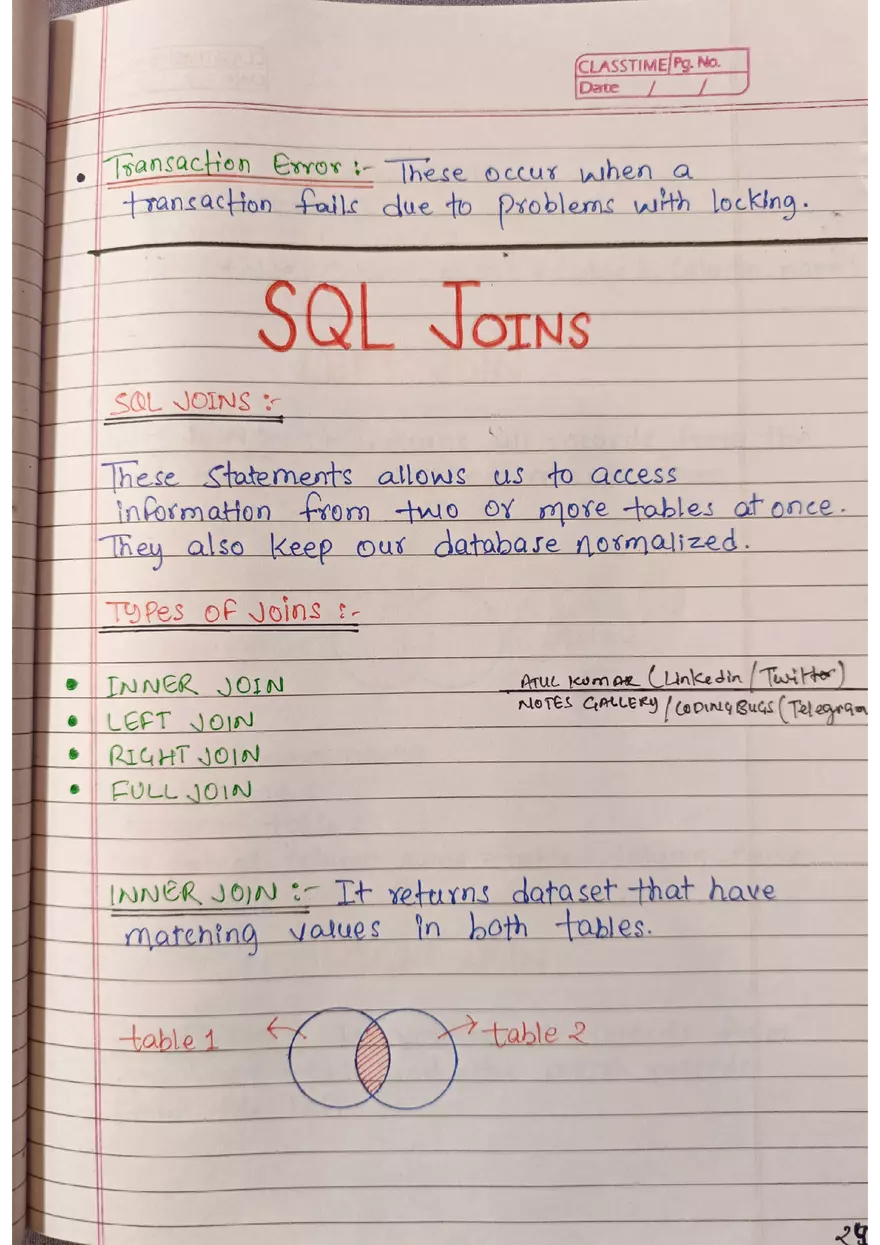 CLASSTIME Pg. No.
Date / /
• Transaction Error :- These occur when a
transaction fails due to problems with locking.
SQL JOINS
SQL JOINS :-
These statements allows us to access
information from two or more tables at once.
They also keep our database normalized.
Types of Joins :-
• INNER JOIN
• LEFT JOIN
• RIGHT JOIN
• FULL JOIN
ATUL KUMAR (Linkedin / Twitter)
NOTES GALLERY / CODING BUGS (Telegram
INNER JOIN :- It returns dataset that have
matching values in both tables.
table 1
table 2